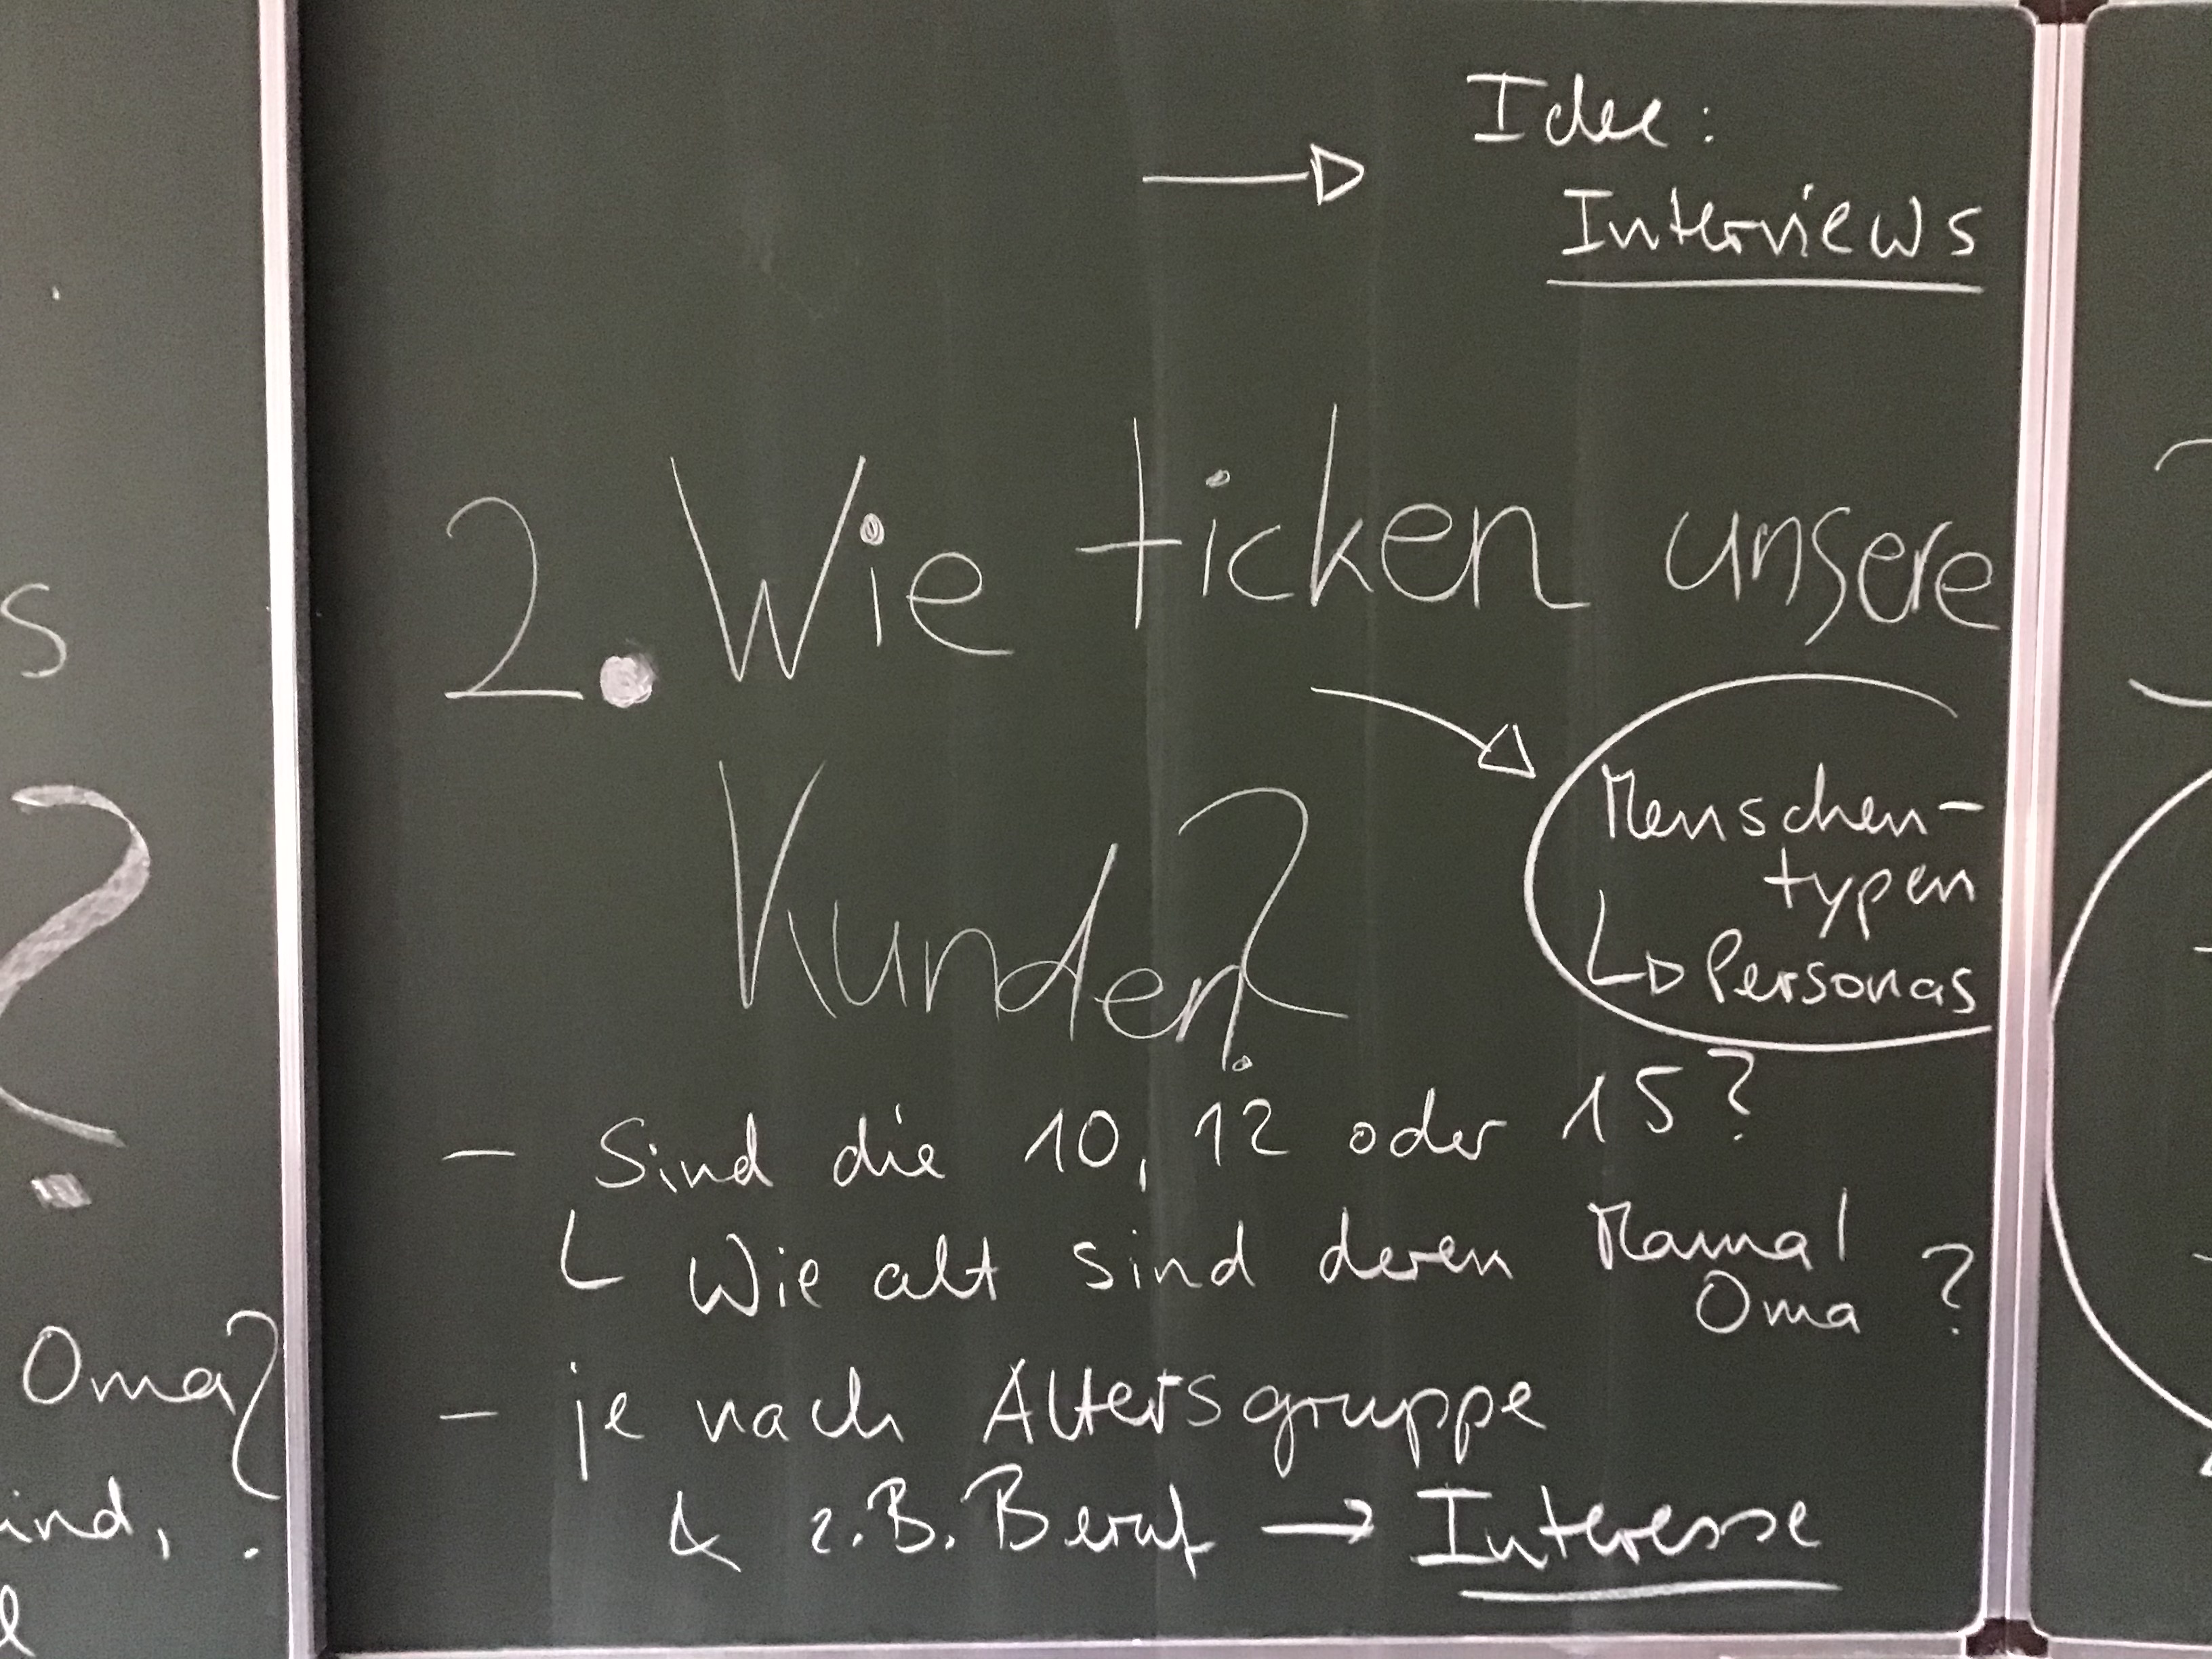 → Idee:
Interviews
2. Wie ticken unsere
Kunden?
Menschen-
typen
↳ Personas
- Sind die 10, 12 oder 15?
└ Wie alt sind deren Mama/
Oma ?
- je nach Altersgruppe
& z.B. Beruf → Interesse
s
?
Oma?
ind,